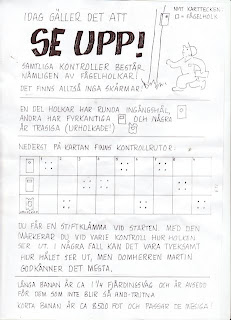 IDAG GÄLLER DET ATT
NYTT KARTTECKEN
= FÅGELHOLK
SE UPP!
SAMTLIGA KONTROLLER BESTÅR
NÄMLIGEN AV FÅGELHOLKAR!
DET FINNS ALLTSÅ INGA SKÄRMAR!
EN DEL HOLKAR HAR RUNDA INGÅNGSHÅL,
ANDRA HAR FYRKANTIGA OCH NÅGRA
ÄR TRASIGA (URHOLKADE?)
NEDERST PÅ KARTAN FINNS KONTROLLRUTOR:
DU FÅR EN STIFTKLÄMMA VID STARTEN. MED DEN
MARKERAR DU VID VARJE KONTROLL HUR HOLKEN
SER UT. I NÅGRA FALL KAN DET VARA TVEKSAMT
HUR HÅLET SER UT, MEN DOMHERREN MARTIN
GODKÄNNER DET MESTA.
LÅNGA BANAN ÄR CA 1 1/4 FJÄRDINGSVÄG OCH ÄR AVSEDD
FÖR DEM SOM INTE BLIR SÅ AND-TRUTNA
KORTA BANAN ÄR CA 8500 FOT OCH PASSAR DE